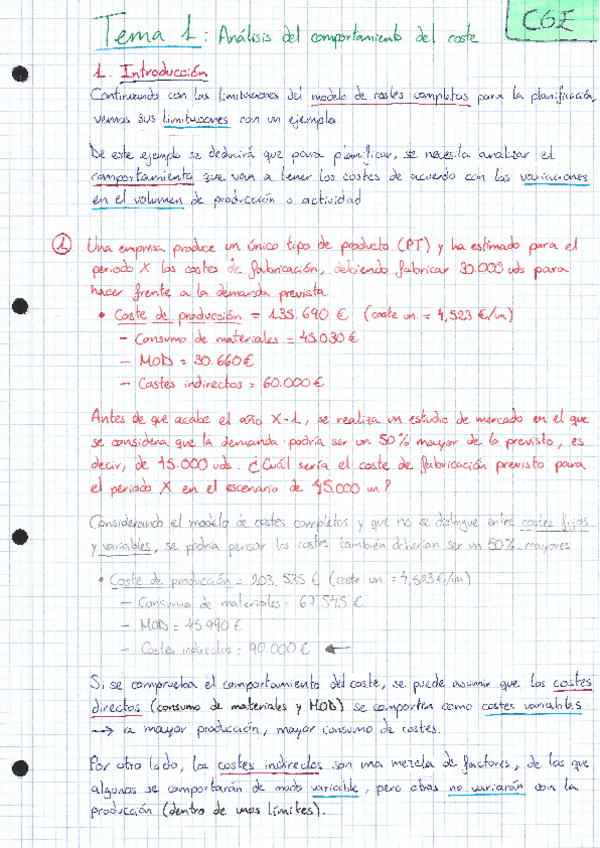 CGE
Tema 1: Análisis del comportamiento del coste
1. Introducción
Continuando con las limitaciones del modelo de costes completos para la planificación,
vemos sus limitaciones con un ejemplo.
De este ejemplo se deducirá que para planificar, se necesita analizar el
comportamiento que van a tener los costes de acuerdo con las variaciones
en el volumen de producción o actividad
① Una empresa produce un único tipo de producto (PT) y ha estimado para el
periodo X los costes de fabricación, debiendo fabricar 30.000 uds para
hacer frente a la demanda prevista
• Coste de producción = 135.690 € (coste un. = 4,523 €/un)
— Consumo de materiales = 45.030 €
— MOD = 30.660 €
— Costes indirectos = 60.000 €
Antes de que acabe el año X-1, se realiza un estudio de mercado en el que
se considera que la demanda podría ser un 50% mayor de lo previsto, es
decir, de 45.000 uds. ¿Cuál sería el coste de fabricación previsto para
el periodo X en el escenario de 45.000 un?
Considerando el modelo de costes completos y que no se distingue entre costes fijos
y variables, se podría pensar los costes también deberían ser un 50% mayores
• Coste de producción = 203.535 € (coste un. = 4,523 €/un)
— Consumo de materiales = 67.545 €
— MOD = 45.990 €
— Costes indirectos = 90.000 € ←
Si se comprueba el comportamiento del coste, se puede asumir que los costes
directos (consumo de materiales y MOD) se comportan como costes variables
→ a mayor producción, mayor consumo de costes.
Por otro lado, los costes indirectos son una mezcla de factores, de los que
algunos se comportarán de modo variable, pero otros no variarán con la
producción (dentro de unos límites).